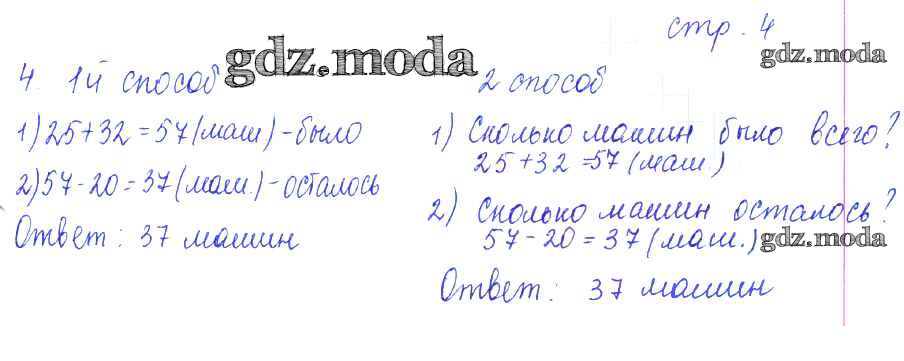 стр. 4
gdz.moda
gdz.moda
4. 1й способ
1) 25+32=57(маш)-было
2) 57-20=37(маш.)-осталось
Ответ: 37 машин
2 способ
1) Сколько машин было всего?
25+32=57(маш.)
2) Сколько машин осталось?
57-20=37(маш.)
gdz.moda
Ответ: 37 машин